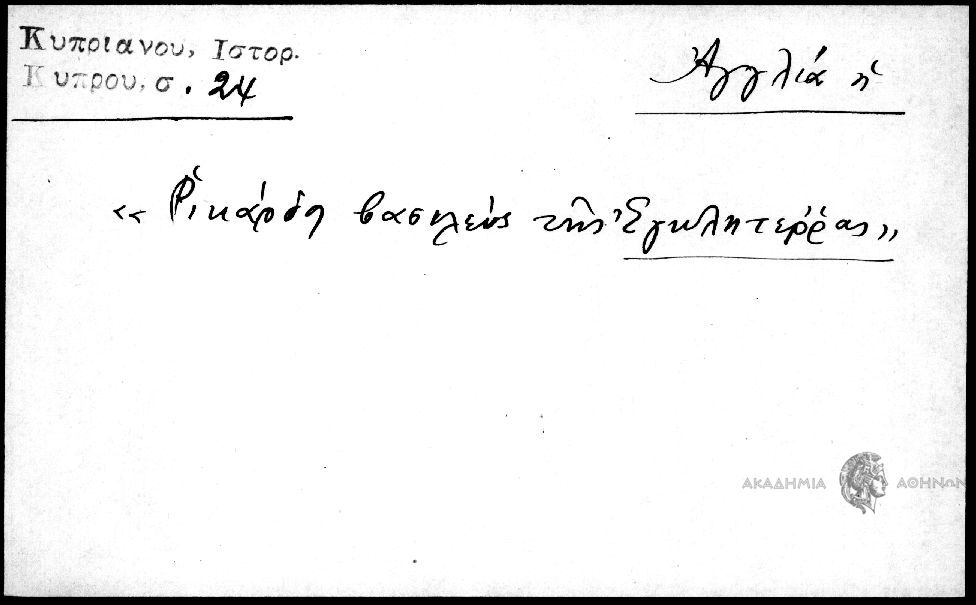 Κυπριανου, Ιστορ.
Κυπρου, σ. 24
Ἀγγλία ἡ
« Ῥικάρδη βασιλεὺς τῆς Ἐγκλητέρρας »
ΑΚΑΔΗΜΙΑ ΑΘΗΝΩΝ